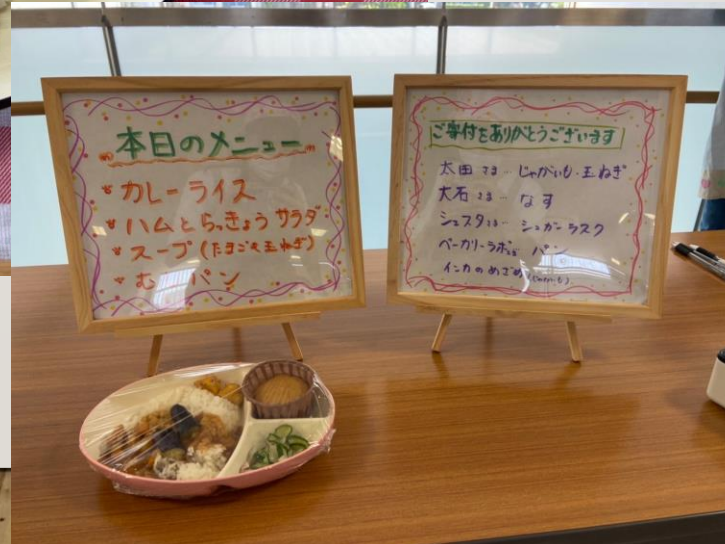 本日のメニュー
カレーライス
ハムとらっきょう サラダ
スープ(たまごと玉ねぎ)
む パン
ご寄付をありがとうございます
太田さま… じゃがいも・玉ねぎ
大石さま… なす
シュガーラスク
ベーカリーラボ パン
インカのめざめ(じゃがいも)